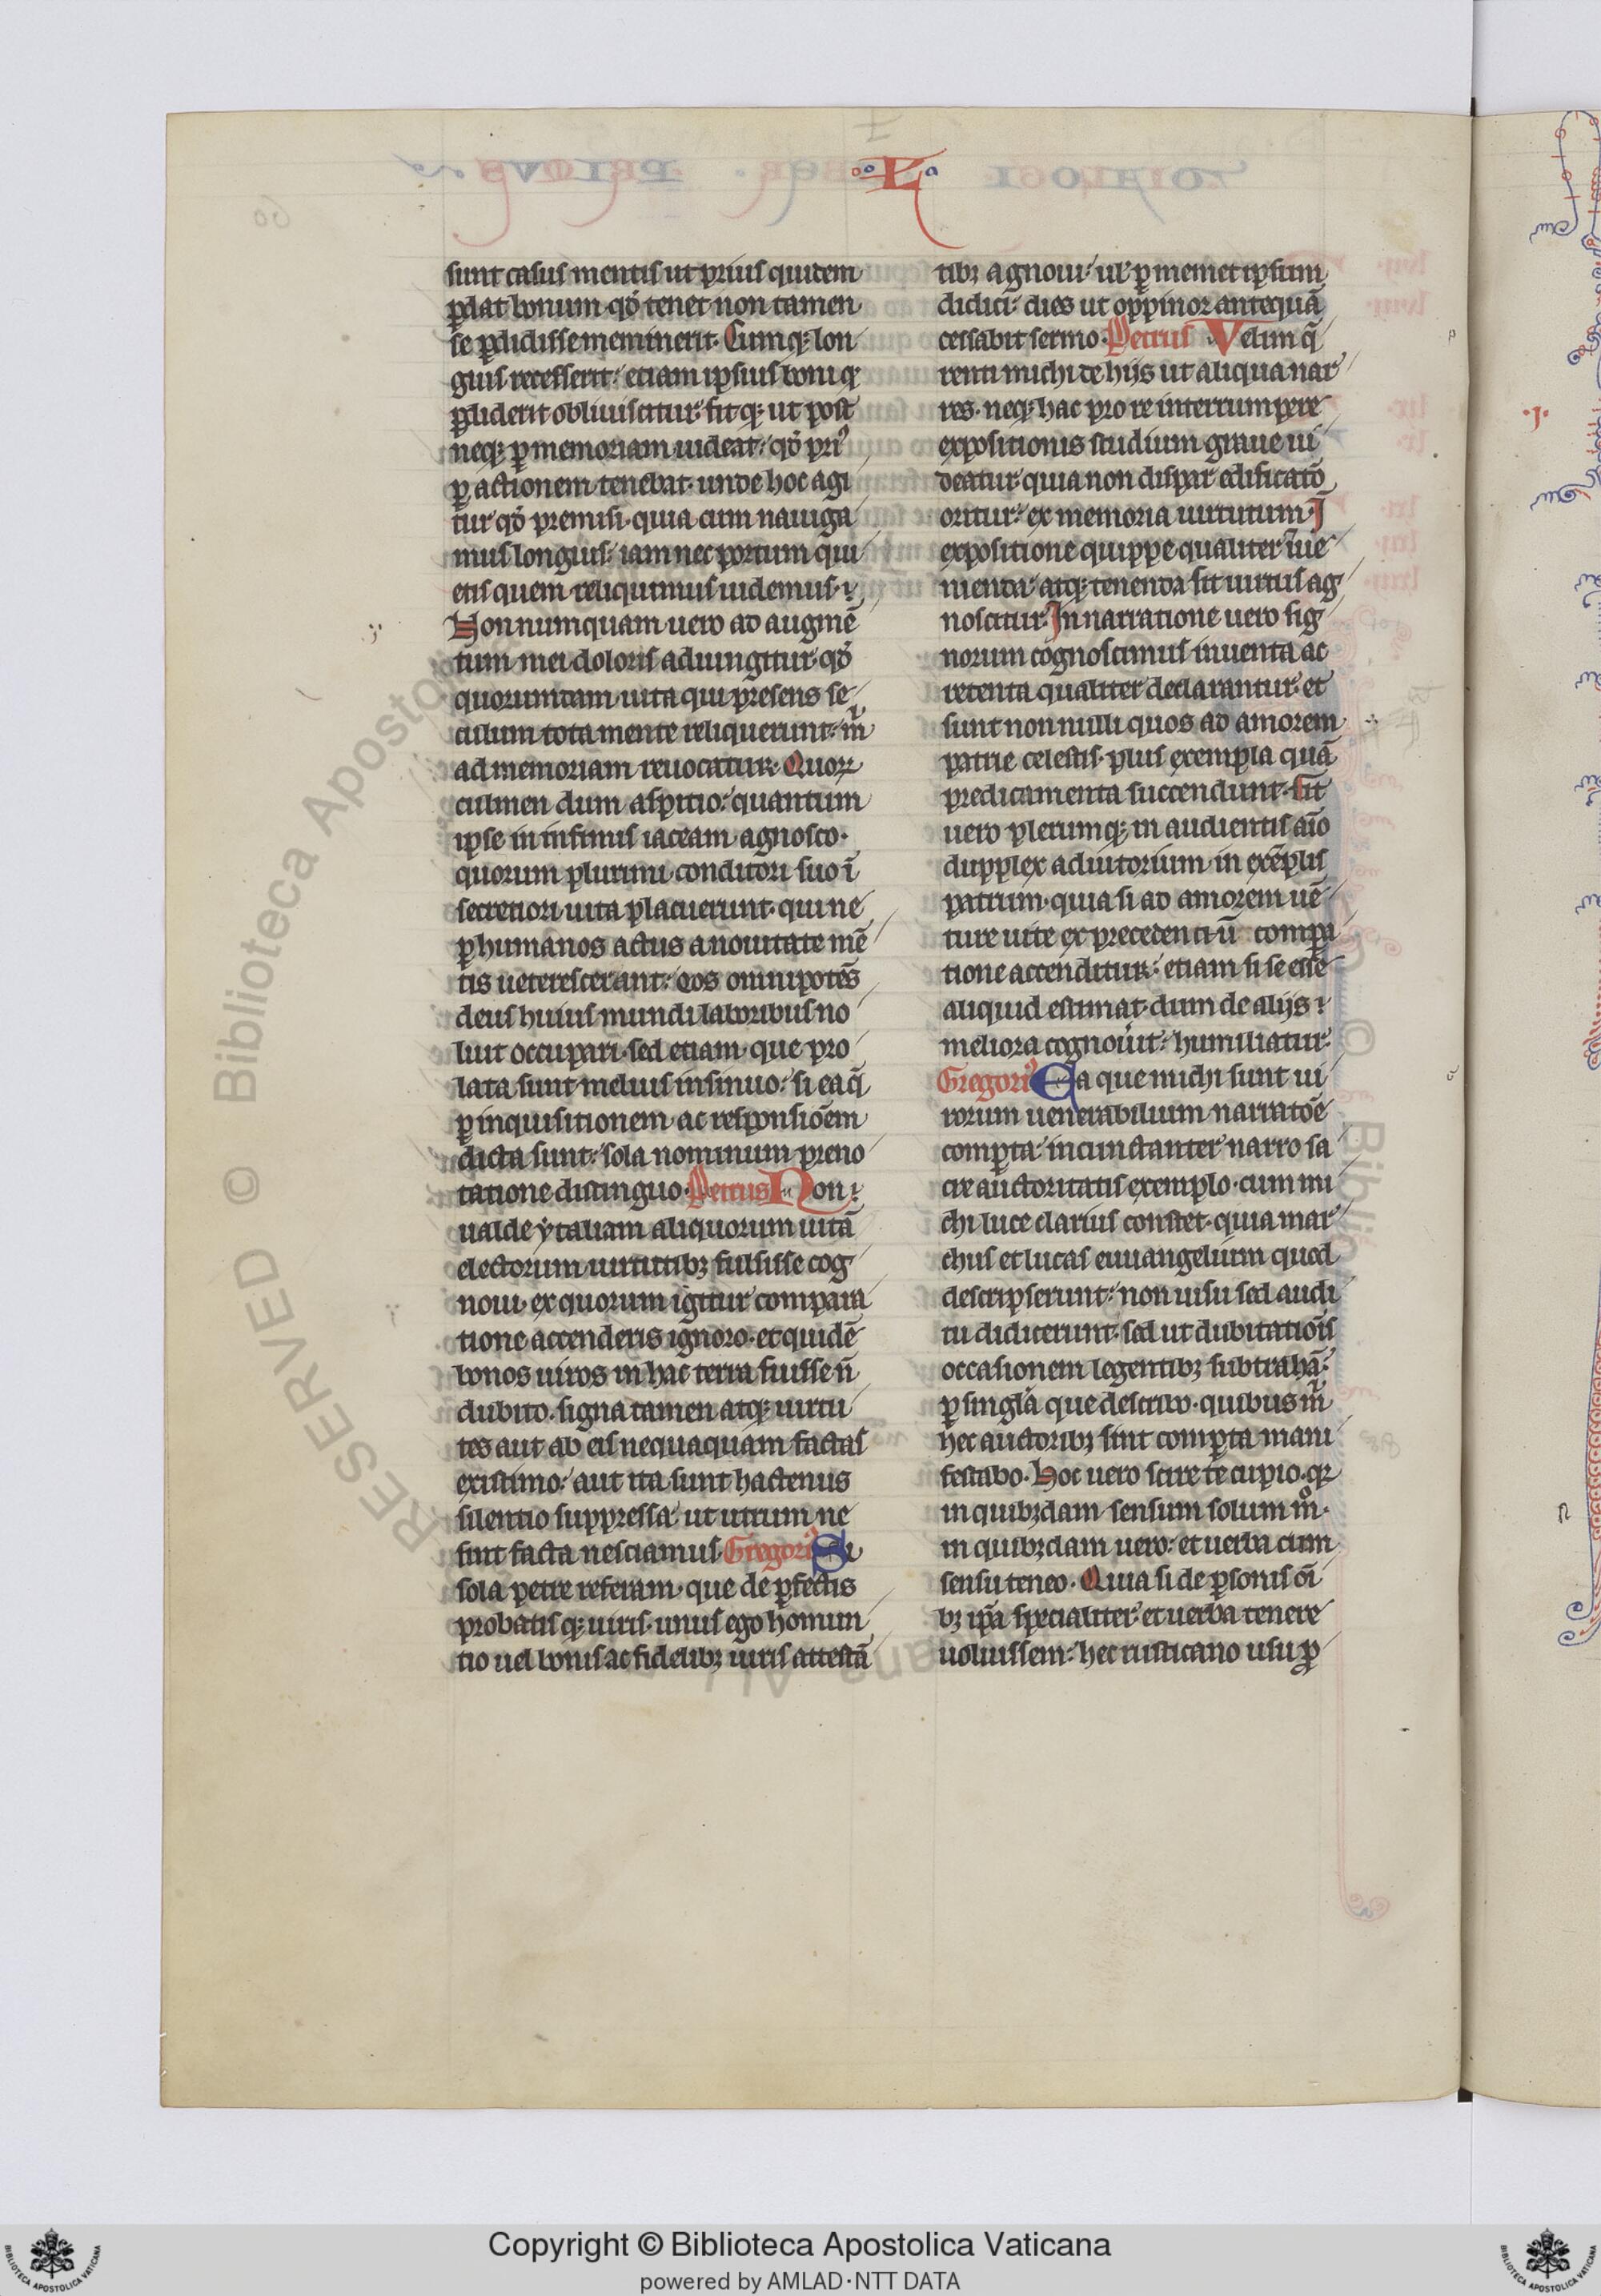 L
sunt casus mentis ut prius quidem
ꝑdat bonum qđ tenet non tamen
se ꝑdidisse meminerit. Cumq; lon
gius recesserit: etiam ipsius boni qđ
ꝑdiderit obliuiscitur. fitq; ut post
neq; ꝑ memoriam uideat: qđ priꝰ
ꝑ actionem tenebat. unde hoc agi
tur qđ premisi. quia cum nauiga
mus longius: iam nec portum qui
etis quem reliquimus uidemus.
Nonnumquam uero ad augmē
tum mei doloris adiungitur. qđ
quorumdam uita qui presens se
culum tota mente reliquerunt: m̄
ad memoriam reuocatur. Quoꝝ
culmen dum aspicio: quantum
ipse in infimis iaceam agnosco.
quorum plurimi conditori suo ī
secretiori uita placuerunt. qui ne
ꝑ humanos actus a nouitate mē
tis ueterescerant: eos omnipotēs
deus huius mundi laboribus no
luit occupari. sed etiam que pro
lata sunt melius insinuo: si ea q̄
ꝑ inquisitionem ac responsiōem
dicta sunt: sola nominum preno
tatione distinguo. Petrus Non
ualde ytaliam aliquorum uitā
electorum uirtutibꝫ fulsisse cog
noui. ex quorum igitur compara
tione accenderis ignoro. et quidē
bonos uiros in hac terra fuisse n̄
dubito. signa tamen atq; uirtu
tes aut ab eis nequaquam factas
existimo: aut ita sunt hactenus
silentio suppressa ut utrum ne
sint facta nesciamus. Gregoriꝰ Si
sola petre referam. que de ꝑfectis
probatisq; uiris. unus ego homun
tio uel bonis ac fidelibꝫ uiris attestā
tibꝫ agnoui: ul' ꝑ memetipsum
didici: dies ut oppinor antequā
cessabit sermo. Petrus Velim q̄
renti michi de hijs ut aliqua nar
res. neq; hac pro re interrumpere
expositionis studium graue ui
deatur. quia non dispar edificatō
oritur: ex memoria uirtutum. I
expositione quippe qualiter īue
nienda atq; tenenda sit uirtus ag
noscitur. In narratione uero sig
norum cognoscimus inuenta ac
retenta qualiter declarantur. et
sunt non nulli quos ad amorem
patrie celestis. plus exempla quā
predicamenta succendunt. Fit
uero plerumq; in audientis aīo
dupplex adiutorium in exēplis
patrum. quia si ad amorem uē
ture uite ex precedenciū compa
tione accenditur: etiam si se esse
aliquid estimat. dum de alijs
meliora cognouit: humiliatur.
Gregoriꝰ Ea que michi sunt ui
rorum uenerabilium narratōe
comꝑta: incunctanter narro sa
cre auctoritatis exemplo. cum mi
chi luce clarius constet. quia mar
chus et lucas euuangelium quod
descripserunt: non uisu sed audi
tu didicerunt. sed ut dubitatiōis
occasionem legentibꝫ subtrahā:
ꝑ singl'a que describo. quibus m̄
hec auctoribꝫ sint comꝑta mani
festabo. Hoc uero scire te cupio. qꝛ
in quibꝫdam sensum solum m̊.
in quibꝫdam uero: et uerba cum
sensu teneo. Quia si de ꝑsonis oī
bꝫ ip̄a specialiter et uerba tenere
uoluissem: hec rusticano usu ꝓ
.I.
RESERVED © Biblioteca Aposto
© Biblio
Copyright © Biblioteca Apostolica Vaticana
powered by AMLAD·NTT DATA
BIBLIOTECA APOSTOLICA VATICANA
BIBLIOTECA APOSTOLICA VATICANA